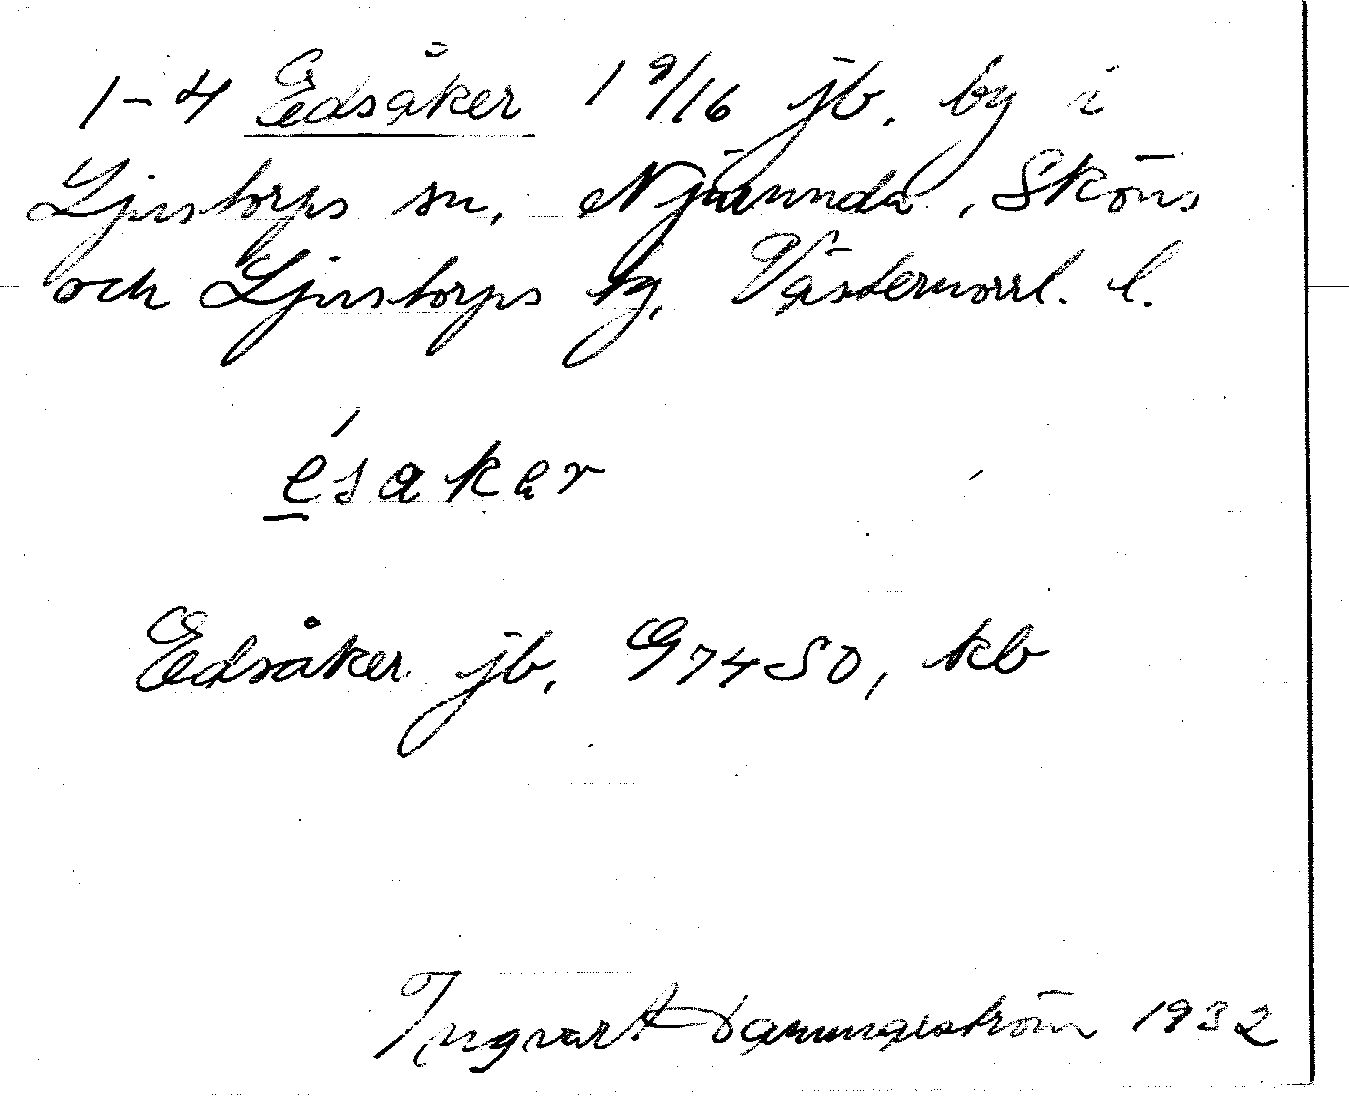 1-4 Edsåker 1 9/16 jb. by i
Ljustorps sn, Njurunda, Sköns
och Ljustorps tg, Västernorrl. l.
ésaker
Edsåker jb, G74SO, kb
Ingvar 1932